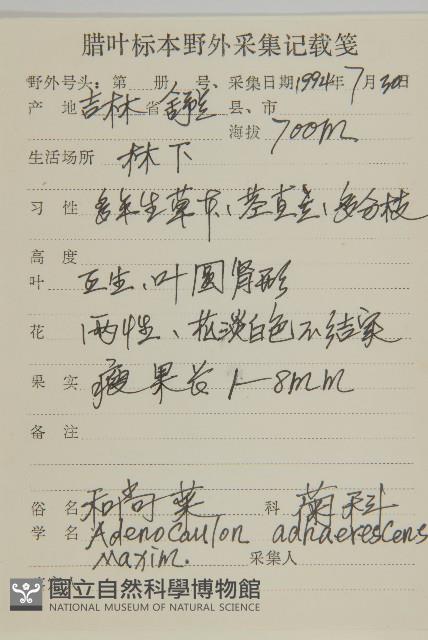 腊叶标本野外采集记载笺
野外号头：第 册 号、采集日期1994年7月30日
产 地 吉林省 舒兰 县、市
海拔 700m
生活场所 林下
习 性 多年生草本、茎直立、多分枝
高 度
叶 互生、叶圆肾形
花 两性、花淡白色不结实
果 实 瘦果长 1-8mm
备 注
俗 名 和尚菜 科 菊科
学 名 Adenocaulon adhaerescens
Maxim. 采集人
國立自然科學博物館
NATIONAL MUSEUM OF NATURAL SCIENCE